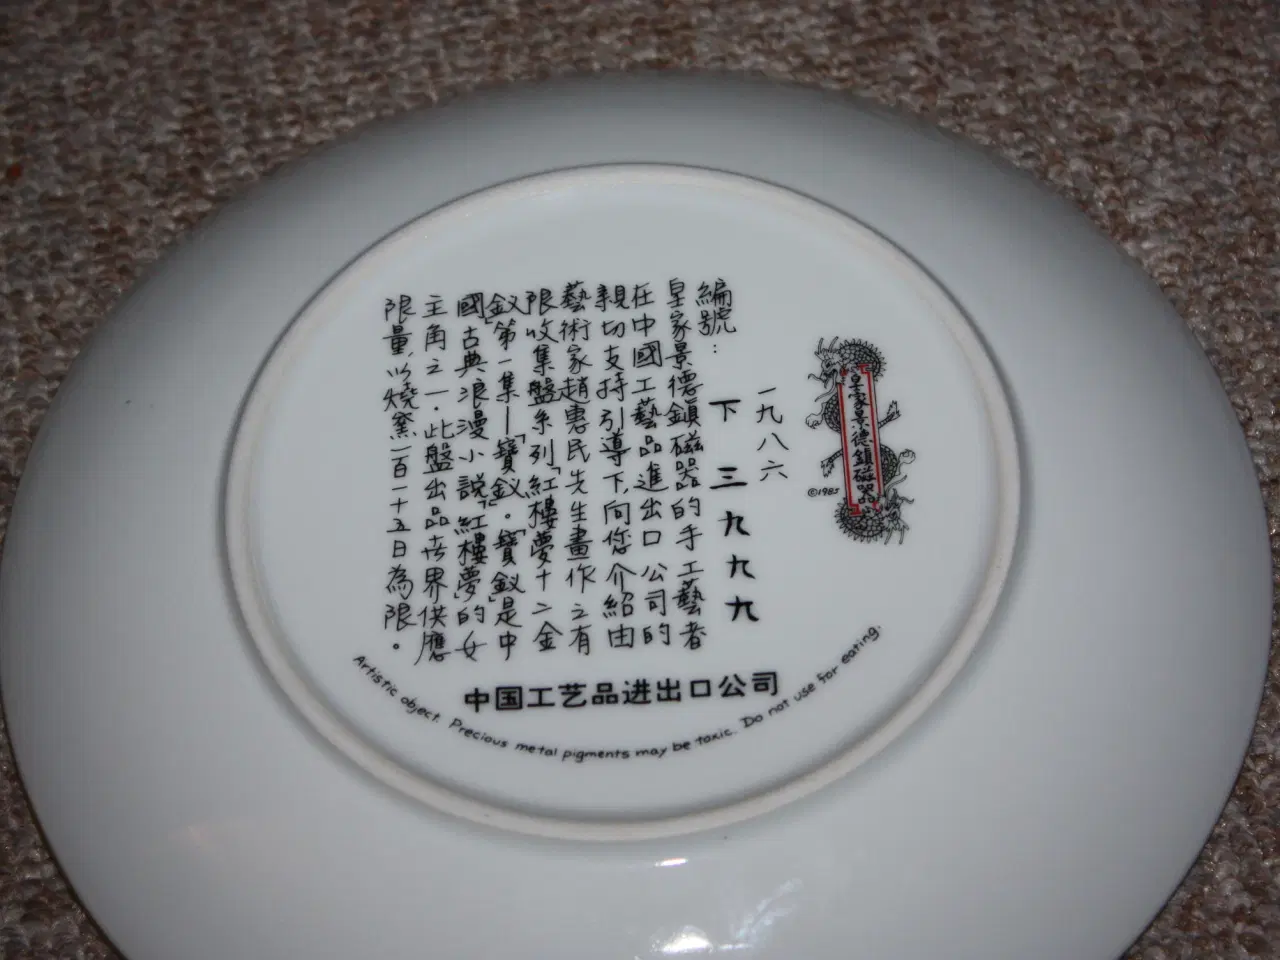 皇家景德鎮磁器品
©1985
一九八六
編號：下三九九九
皇家景德鎮磁器的手工藝者
在中國工藝品進出口公司的
親切支持引導下，向您介紹由
藝術家趙惠民先生畫作之有
限收集盤系列「紅樓夢十二金
釵」第一集—「寶釵」。「寶釵」是中
國古典浪漫小説「紅樓夢」的女
主角之一．此盤出品去界供應
限量，以燒窯一百一十五日為限。
中国工艺品进出口公司
Artistic object. Precious metal pigments may be toxic. Do not use for eating.